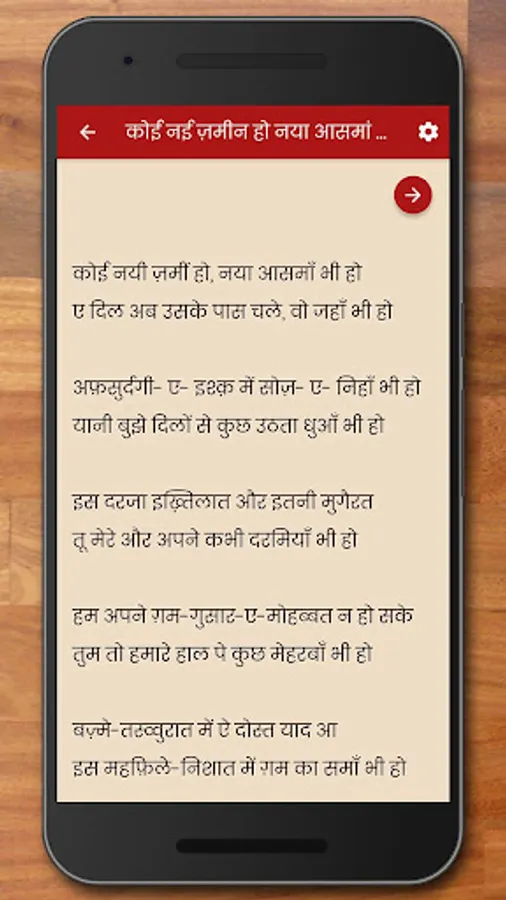 कोई नई ज़मीन हो नया आसमां ...
कोई नयी ज़मीं हो, नया आसमाँ भी हो
ए दिल अब उसके पास चले, वो जहाँ भी हो
अफ़सुर्दगी- ए- इश्क़ में सोज़- ए- निहाँ भी हो
यानी बुझे दिलों से कुछ उठता धुआँ भी हो
इस दरजा इख़्तिलात और इतनी मुगैरत
तू मेरे और अपने कभी दरमियाँ भी हो
हम अपने ग़म-गुसार-ए-मोहब्बत न हो सके
तुम तो हमारे हाल पे कुछ मेहरबाँ भी हो
बज़्मे-तस्व्वुरात में ऐ दोस्त याद आ
इस महफ़िले-निशात में ग़म का समाँ भी हो